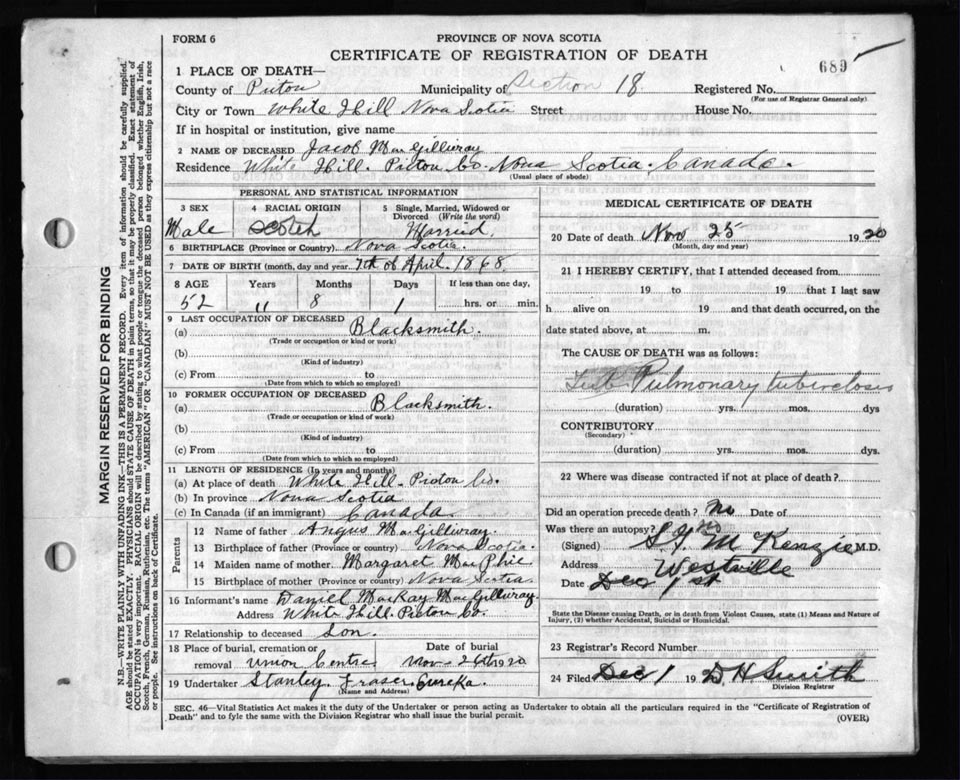 FORM 6
PROVINCE OF NOVA SCOTIA
CERTIFICATE OF REGISTRATION OF DEATH
689
1 PLACE OF DEATH—
County of Pictou Municipality of Section 18 Registered No.
(For use of Registrar General only)
City or Town White Hill Nova Scotia Street House No.
If in hospital or institution, give name
2 NAME OF DECEASED Jacob MacGillivray
Residence White Hill. Pictou Co. Nova Scotia. Canada.
(Usual place of abode)
PERSONAL AND STATISTICAL INFORMATION
3 SEX 4 RACIAL ORIGIN 5 Single, Married, Widowed or Divorced (Write the word)
Male Scotch Married
6 BIRTHPLACE (Province or Country) Nova Scotia.
7 DATE OF BIRTH (month, day and year 7th of April. 1868.
8 AGE Years Months Days If less than one day,
52 " 8 1 hrs. or min.
9 LAST OCCUPATION OF DECEASED
(a) Blacksmith.
(Trade or occupation or kind or work)
(b)
(Kind of industry)
(c) From to
(Date from which to which so employed)
10 FORMER OCCUPATION OF DECEASED
(a) Blacksmith.
(Trade or occupation or kind of work)
(b)
(Kind of industry)
(c) From to
(Date from which to which so employed)
11 LENGTH OF RESIDENCE (In years and months)
(a) At place of death White Hill. Pictou Co.
(b) In province Nova Scotia
(c) In Canada (if an immigrant) Canada.
Parents
12 Name of father Angus MacGillivray.
13 Birthplace of father (Province or country) Nova Scotia.
14 Maiden name of mother. Margaret MacPhie
15 Birthplace of mother (Province or country) Nova Scotia
16 Informant's name Daniel MacKay MacGillivray.
Address White Hill. Pictou Co.
17 Relationship to deceased Son.
18 Place of burial, cremation or removal Union Centre Date of burial Nov 1920
19 Undertaker Stanley Fraser. Eureka.
(Name and Address)
MEDICAL CERTIFICATE OF DEATH
20 Date of death Nov 25 1920
(Month, day and year)
21 I HEREBY CERTIFY, that I attended deceased from
19 to 19 that I last saw
h alive on 19 and that death occurred, on the
date stated above, at m.
The CAUSE OF DEATH was as follows:
Pulmonary tuberclosis
(duration) yrs. mos. dys
CONTRIBUTORY
(Secondary)
(duration) yrs. mos. dys.
22 Where was disease contracted if not at place of death?
Did an operation precede death? No Date of
Was there an autopsy? no
(Signed) McKenzie M.D.
Address Westville
Date Dec 1st
State the Disease causing Death, or in death from Violent Causes, state (1) Means and Nature of
Injury, (2) whether Accidental, Suicidal or Homicidal.
23 Registrar's Record Number
24 Filed Dec 1 19 D H Smith
Division Registrar
SEC. 46—Vital Statistics Act makes it the duty of the Undertaker or person acting as Undertaker to obtain all the particulars required in the "Certificate of Registration of
Death" and to fyle the same with the Division Registrar who shall issue the burial permit.
(OVER)
MARGIN RESERVED FOR BINDING
N.B.—WRITE PLAINLY WITH UNFADING INK—THIS IS A PERMANENT RECORD. Every item of information should be carefully supplied.
AGE should be stated EXACTLY. PHYSICIANS should STATE CAUSE OF DEATH in plain terms, so that it may be properly classified. Exact statement of
OCCUPATION is very important. RACIAL ORIGIN will be described by stating to what people or tongue the deceased person belonged whether English, Irish,
Scotch, French, German, Russian, Ruthenian, etc. The terms "AMERICAN" OR "CANADIAN" MUST NOT BE USED as they express citizenship but not a race
or people. See instructions on back of Certificate.